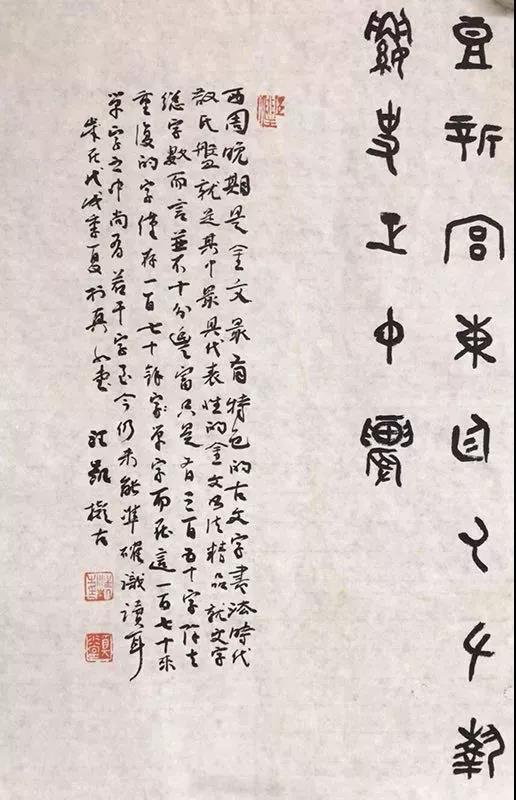 豆新宮東廷厥左執
史正中農
西周晚期是金文最有特色的古文字書法時代
散氏盤就是其中最具代表性的金文書法精品就文字
總字數而言並不十分豐富只是有三百五十字除去
重復的字僅存一百七十餘單字而在這一百七十來
單字之中尚有若干字至今仍未能準確識讀耳
歲在戊戌季夏於真堂 擬古